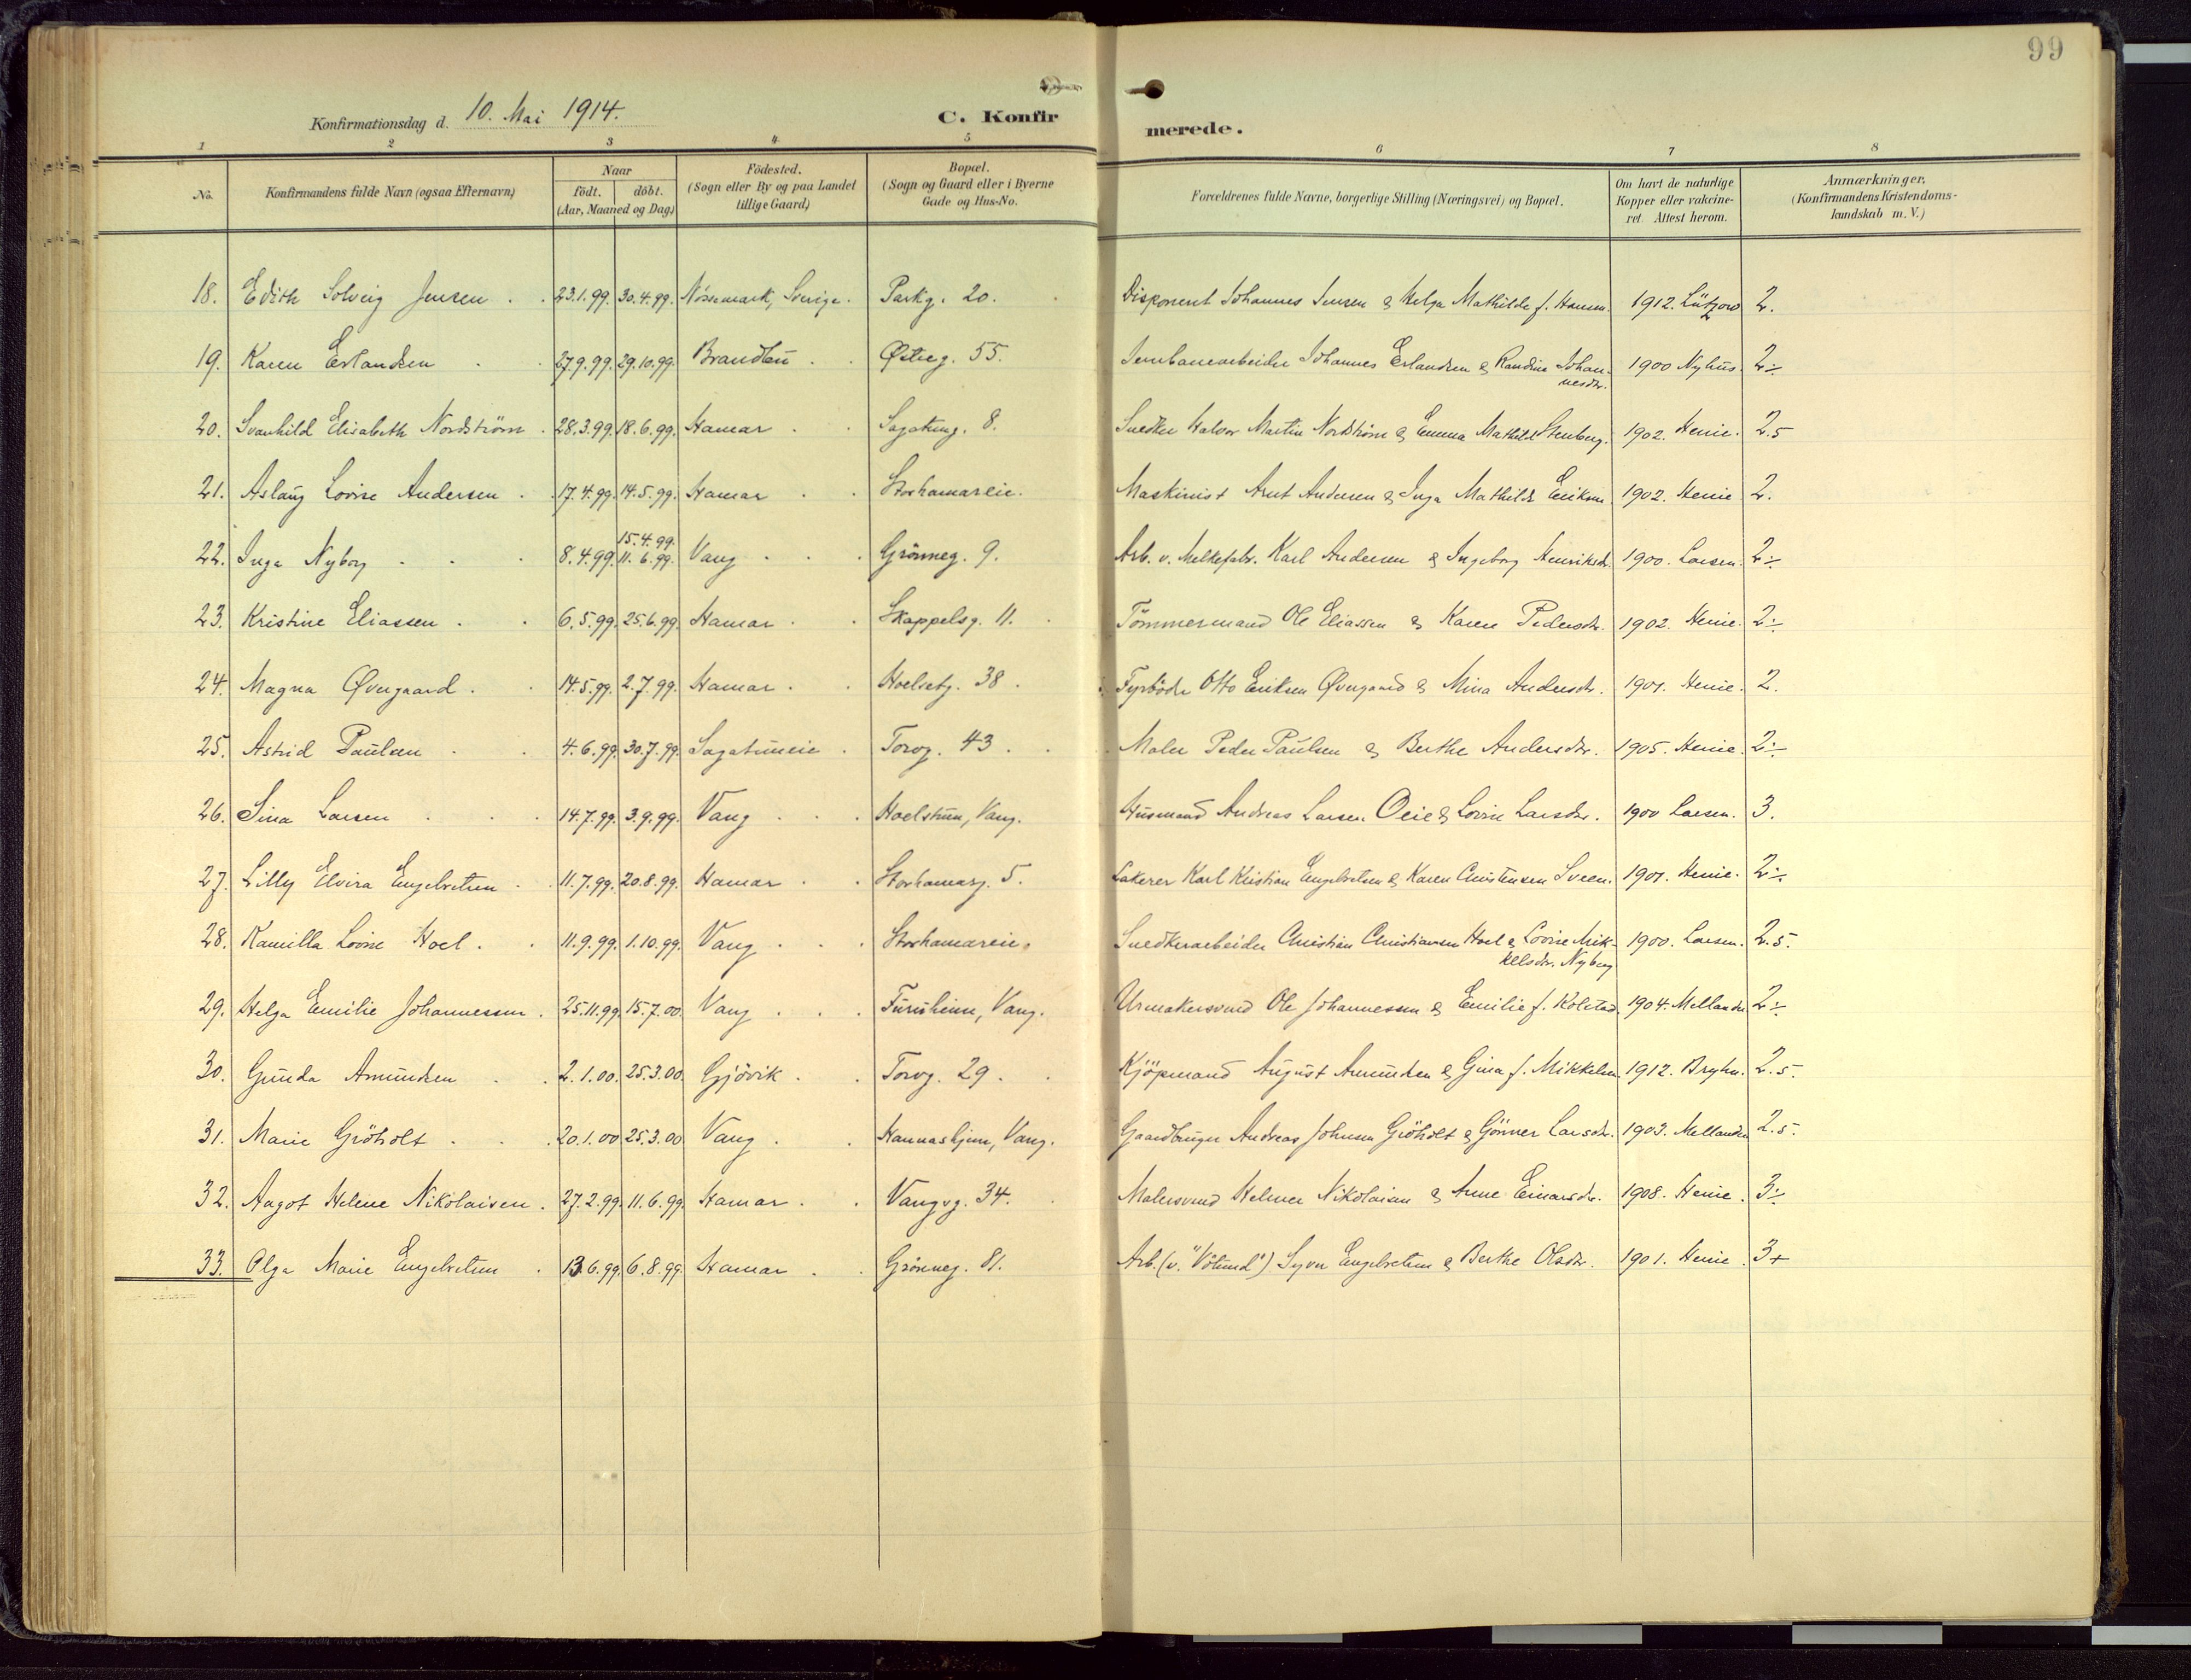 99
Konfirmationsdag d. 10. Mai 1914. C. Konfirmerede.
1 2 3 4 5 6 7 8
No. Konfirmandens fulde Navn (ogsaa Efternavn) Naar födt. döbt. (Aar, Maaned og Dag) Födested. (Sogn eller By og paa Landet tillige Gaard) Bopæl. (Sogn og Gaard eller i Byerne Gade og Hus-No. Forældrenes fulde Navne, borgerlige Stilling (Næringsvei) og Bopæl. Om havt de naturlige Kopper eller vakcineret Attest herom. Anmærkninger, (Konfirmandens Kristendomskundskab m. V.)
18. Edith Solveig Jensen 23.1.99. 30.4.99. Nössemark, Sverige. Parkg. 20. Disponent Johannes Jensen & Helga Mathilde f. Hansen. 1912. Lützow 2.
19. Karen Erlandsen 27.9.99. 29.10.99. Brandbu Østreg. 55. Jernbanearbeider Johannes Erlandsen & Randine Johannesdr. 1900 Nyhus. 2÷
20. Svanhild Elisabeth Nordström 28.3.99. 18.6.99. Hamar Sagatung. 8. Snedker Halvor Martin Nordström & Emma Mathild Stenberg. 1902. Henie. 2.5
21. Aslaug Lovise Andersen 17.4.99. 14.5.99. Hamar Storhamareie. Maskinist Arnt Andersen & Inga Mathilde Eriksen 1902. Henie 2.
22. Inga Nyborg 8.4.99. 15.4.99. 11.6.99. Vang Grönneg. 9. Arb. v. Melkefabr. Karl Andersen & Ingeborg Henriksdr. 1900. Larsen. 2÷
23. Kristine Eliassen 6.5.99. 25.6.99. Hamar Skappelsg. 11. Tömmermand Ole Eliassen & Karen Pedersdr. 1902. Henie. 2÷
24. Magna Øvergaard 14.5.99. 2.7.99. Hamar Hoelsetg. 38. Fyrböder Otto Eriksen Øvergaard & Mina Andersdr. 1901. Henie. 2.
25. Astrid Paulsen 4.6.99. 30.7.99. Sagatuneie Torvg. 43. Maler Peder Paulsen & Berthe Andersdr. 1905. Henie. 2÷
26. Sina Larsen 14.7.99. 3.9.99. Vang Hoelstun, Vang. Husmand Andreas Larsen & Lovise Larsdr. 1900 Larsen. 3.
27. Lilly Elvira Engebretsen 11.7.99. 20.8.99. Hamar Storhamarg. 5. Lakerer Karl Kristian Engebretsen & Karen Christensen Sveen. 1901. Henie. 2÷
28. Kamilla Lovise Hoel 11.9.99. 1.10.99. Vang Storhamareie. Snedkerarbeider Christian Christiansen Hoel & Lovise Mikkelsdr. Nyberg 1900. Larsen. 2.5.
29. Helga Emilie Johannessen 25.11.99. 15.7.00. Vang Furuheim, Vang. Urmakersvend Ole Johannessen & Emilie f. Kolstad. 1904. Mellander 2÷
30. Gunda Amundsen 2.1.00. 25.3.00. Gjövik Torvg. 29. Kjöpmand August Amundsen & Gina f. Mikkelsen. 1912. Bryhn. 2.5.
31. Marie Gröholt 20.1.00 25.3.00 Vang Vang. Gaardbruger Andreas Johnsen Gröholt & Gönner Larsdr. 1903. Mellander 2.5.
32. Aagot Helene Nikolaisen 27.2.99. 11.6.99. Hamar Vangvg. 34. Malersvend Helmer Nikolaisen & Anne Einarsdr. 1908. Henie. 3÷
33. Olga Marie Engebretsen 13.6.99. 6.8.99. Hamar Grönneg. 81. Arb. (v. "Völund") Syver Engebretsen & Berthe Olsdr. 1901. Henie. 3+